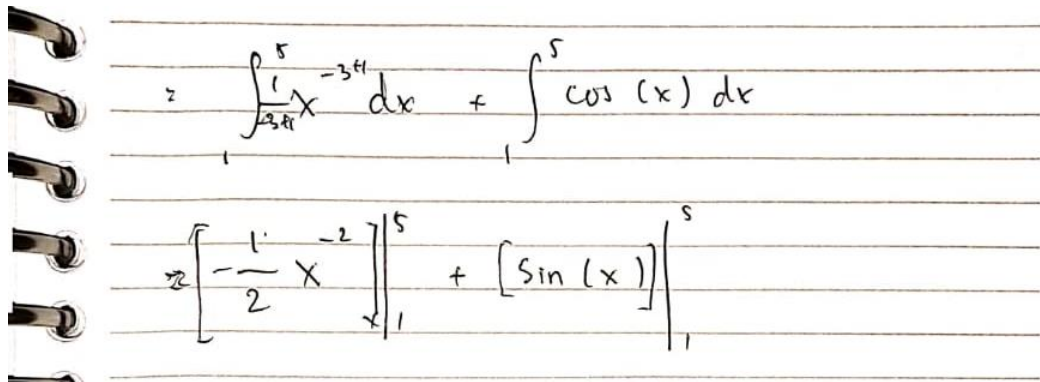 = ∫₁⁵ 1/(-3+1) x^(-3+1) dx + ∫₁⁵ cos (x) dx
= [-1/2 x^(-2)]|₁⁵ + [Sin (x)]|₁⁵